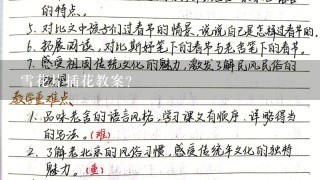 的特点。
5. 对比文中孩子们过春节的情景,说说自己是怎样过春节的。
6. 拓展阅读,对比斯好笔下的春节与老舍笔下的春节。
7. 感受祖国传统文化的魅力,激发了解民风民俗的
雪花片插花教案?
教学重难点
1. 品味老舍的语言风格,学习课文有顺序、详略得当
的写法。(难)
2. 了解老北京的风俗习惯,感受传统年文化的独特
魅力。(重)